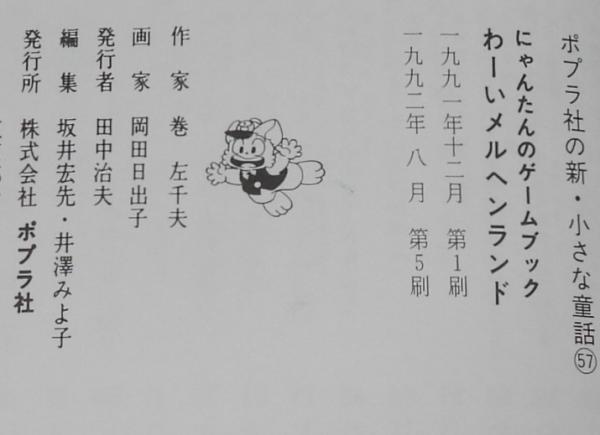 ポプラ社の新・小さな童話㊼
にゃんたんのゲームブック
わーいメルヘンランド
一九九一年十二月 第1刷
一九九二年 八 月 第5刷
作 家 巻 左千夫
画 家 岡田日出子
発行者 田中治夫
編 集 坂井宏先・井澤みよ子
発行所 株式会社 ポプラ社